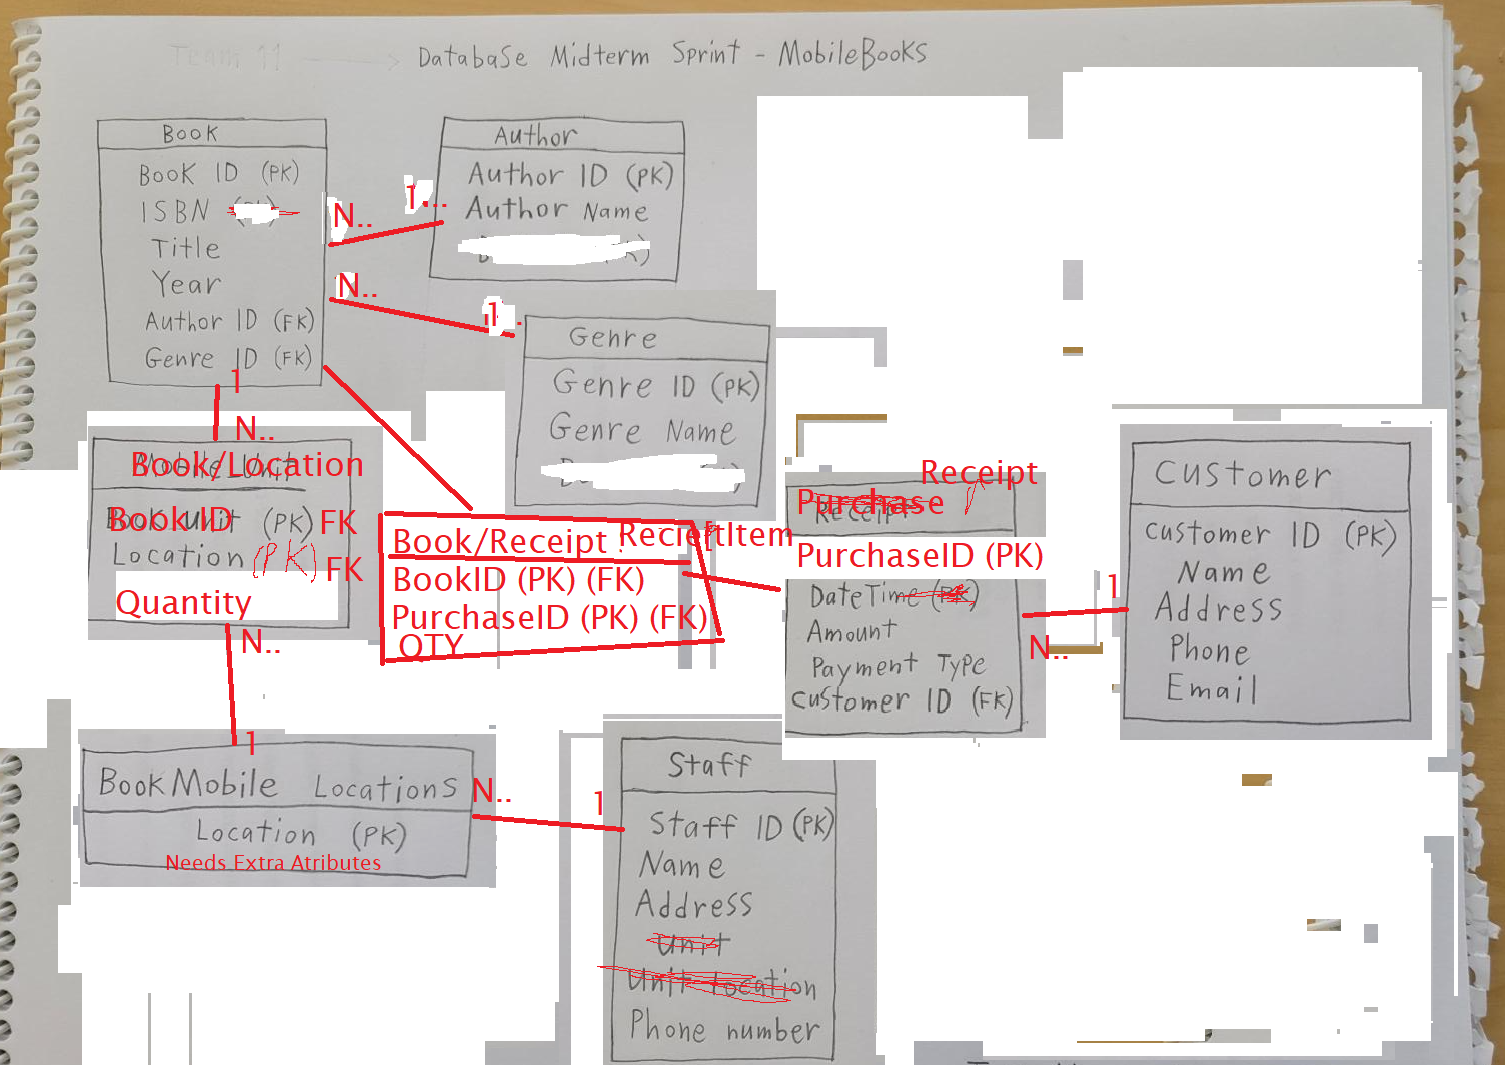 Team 11 → Database Midterm Sprint - MobileBooks
Book
Book ID (PK)
ISBN
Title
Year
Author ID (FK)
Genre ID (FK)
N..
1...
Author
Author ID (PK)
Author Name
N..
1.
Genre
Genre ID (PK)
Genre Name
1
N..
Mobile Unit
Book/Location
Book Unit (PK) FK
Book ID
Location (PK) FK
Quantity
N..
1
Book/Receipt
RecieptItem
BookID (PK) (FK)
PurchaseID (PK) (FK)
QTY
Receipt
Purchase
Receipt
PurchaseID (PK)
DateTime (PK)
Amount
Payment Type
Customer ID (FK)
N..
1
Customer
Customer ID (PK)
Name
Address
Phone
Email
BookMobile Locations
Location (PK)
Needs Extra Atributes
N..
1
Staff
Staff ID (PK)
Name
Address
Unit
Unit Location
Phone number